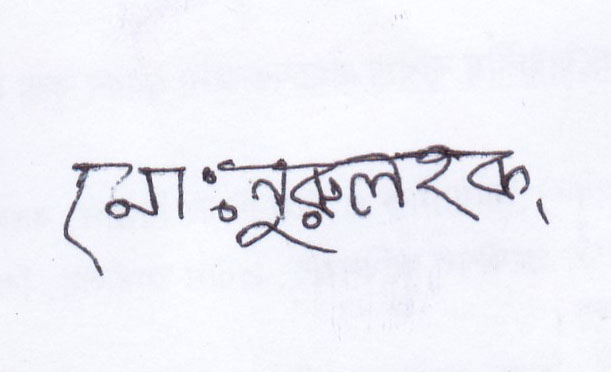 মো: নুরুল হক,